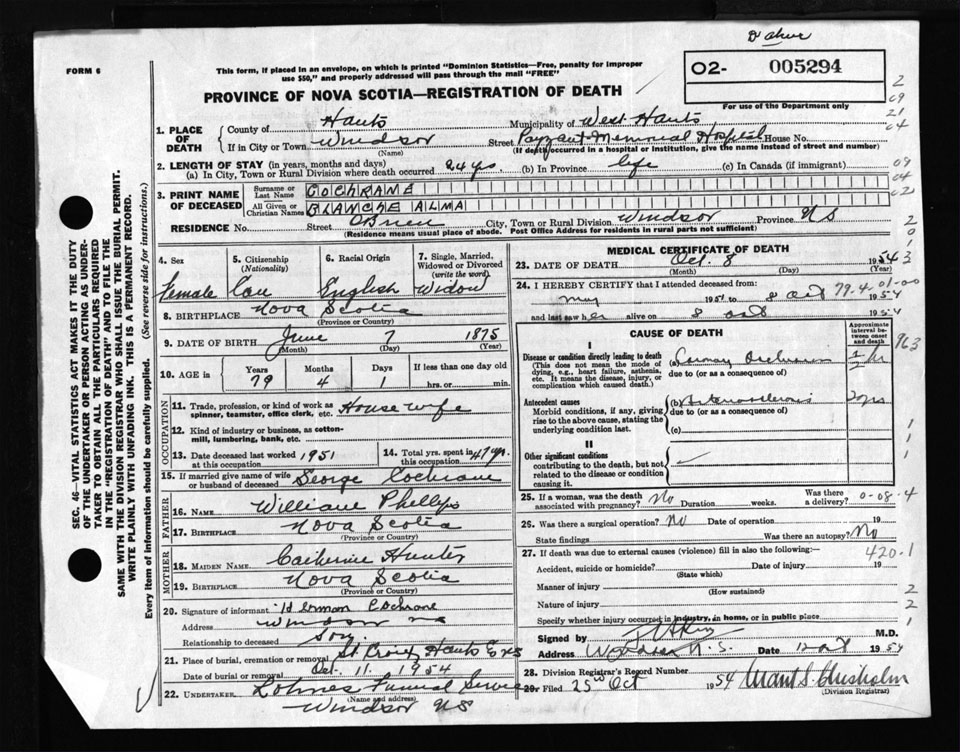 FORM 6
This form, if placed in an envelope, on which is printed "Dominion Statistics—Free, penalty for improper use $50," and properly addressed will pass through the mail "FREE"
O2- 005294
For use of the Department only
PROVINCE OF NOVA SCOTIA—REGISTRATION OF DEATH
1. PLACE OF DEATH
County of Hants Municipality of West Hants
If in City or Town Windsor Street Payzant Memorial Hospital House No.
(Name) (If death occurred in a hospital or institution, give the name instead of street and number)
2. LENGTH OF STAY (in years, months and days)
(a) In City, Town or Rural Division where death occurred 24 yrs. (b) In Province life (c) In Canada (if immigrant)
3. PRINT NAME OF DECEASED
Surname or Last Name COCHRANE
All Given or Christian Names BLANCHE ALMA
RESIDENCE No. Street OBrien City, Town or Rural Division Windsor Province NS
(Residence means usual place of abode. Post Office Address for residents in rural parts not sufficient)
4. Sex Female
5. Citizenship (Nationality) Can
6. Racial Origin English
7. Single, Married, Widowed or Divorced (write the word) Widow
8. BIRTHPLACE Nova Scotia
(Province or Country)
9. DATE OF BIRTH June 7 1875
(Month) (Day) (Year)
10. AGE in Years 79 Months 4 Days 1 If less than one day old hrs. or min.
OCCUPATION
11. Trade, profession or kind of work as spinner, teamster, office clerk, etc. House wife
12. Kind of industry or business, as cotton-mill, lumbering, bank, etc.
13. Date deceased last worked at this occupation 1951
14. Total yrs. spent in this occupation 47 yr.
15. If married give name of wife or husband of deceased George Cochrane
FATHER
16. NAME William Phillips
17. BIRTHPLACE Nova Scotia
(Province or Country)
MOTHER
18. MAIDEN NAME Catherine Hunter
19. BIRTHPLACE Nova Scotia
(Province or Country)
20. Signature of informant Cochrane
Address Windsor NS
Relationship to deceased Son.
21. Place of burial, cremation or removal St. Croix Hants Co NS
Date of burial or removal Oct. 11. 1954
22. UNDERTAKER Lohnes Funeral Service
(Name and address)
Windsor NS
MEDICAL CERTIFICATE OF DEATH
23. DATE OF DEATH Oct. 8 1954
(Month) (Day) (Year)
24. I HEREBY CERTIFY that I attended deceased from:
May 1951 to 8 Oct 1954
and last saw her alive on 8 Oct 1954
CAUSE OF DEATH
Approximate interval between onset and death
I
Disease or condition directly leading to death
(This does not mean the mode of dying, e.g., heart failure, asthenia, etc. It means the disease, injury, or complication which caused death.)
(a) Coronary Occlusion ½ hr
due to (or as a consequence of)
Antecedent causes
Morbid conditions, if any, giving rise to the above cause, stating the underlying condition last.
(b) Arteriosclerosis yrs
due to (or as a consequence of)
(c)
II
Other significant conditions
contributing to the death, but not related to the disease or condition causing it.
25. If a woman, was the death associated with pregnancy? No Duration weeks. Was there a delivery?
26. Was there surgical operation? No Date of operation 19
State findings Was there an autopsy? No
27. If death was due to external causes (violence) fill in also the following:—
Accident, suicide or homicide? Date of injury 19
(State which)
Manner of injury
(How sustained)
Nature of injury
Specify whether injury occurred in industry, in home, or in public place
Signed by M.D.
Address Windsor N.S. Date 12 Oct 1954
28. Division Registrar's Record Number
29. Filed 25 Oct 1954 Chisholm
(Division Registrar)
79-4-01-00
963
0-08-4
420-1
SEC. 46—VITAL STATISTICS ACT MAKES IT THE DUTY OF THE UNDERTAKER OR PERSON ACTING AS UNDERTAKER TO OBTAIN ALL THE PARTICULARS REQUIRED IN THE "REGISTRATION OF DEATH" AND TO FILE THE SAME WITH THE DIVISION REGISTRAR WHO SHALL ISSUE THE BURIAL PERMIT.
WRITE PLAINLY WITH UNFADING INK. THIS IS A PERMANENT RECORD.
Every item of information should be carefully supplied. (See reverse side for instructions.)